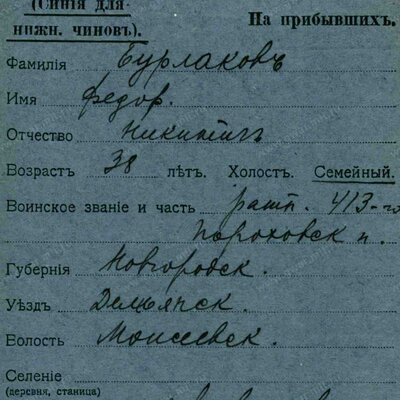 (Синія для
На прибывшихъ.
нижн. чиновъ).
Фамилія Бурлаковъ
Имя Федор.
Отчество Никитичъ
Возрастъ 38 лѣтъ. Холостъ. Семейный.
Воинское званіе и часть ратн. 413-го
Пороховск п.
Губернія Новгородск.
Уѣздъ Демянск.
Волость Моисеевск.
Селеніе
(деревня, станица)